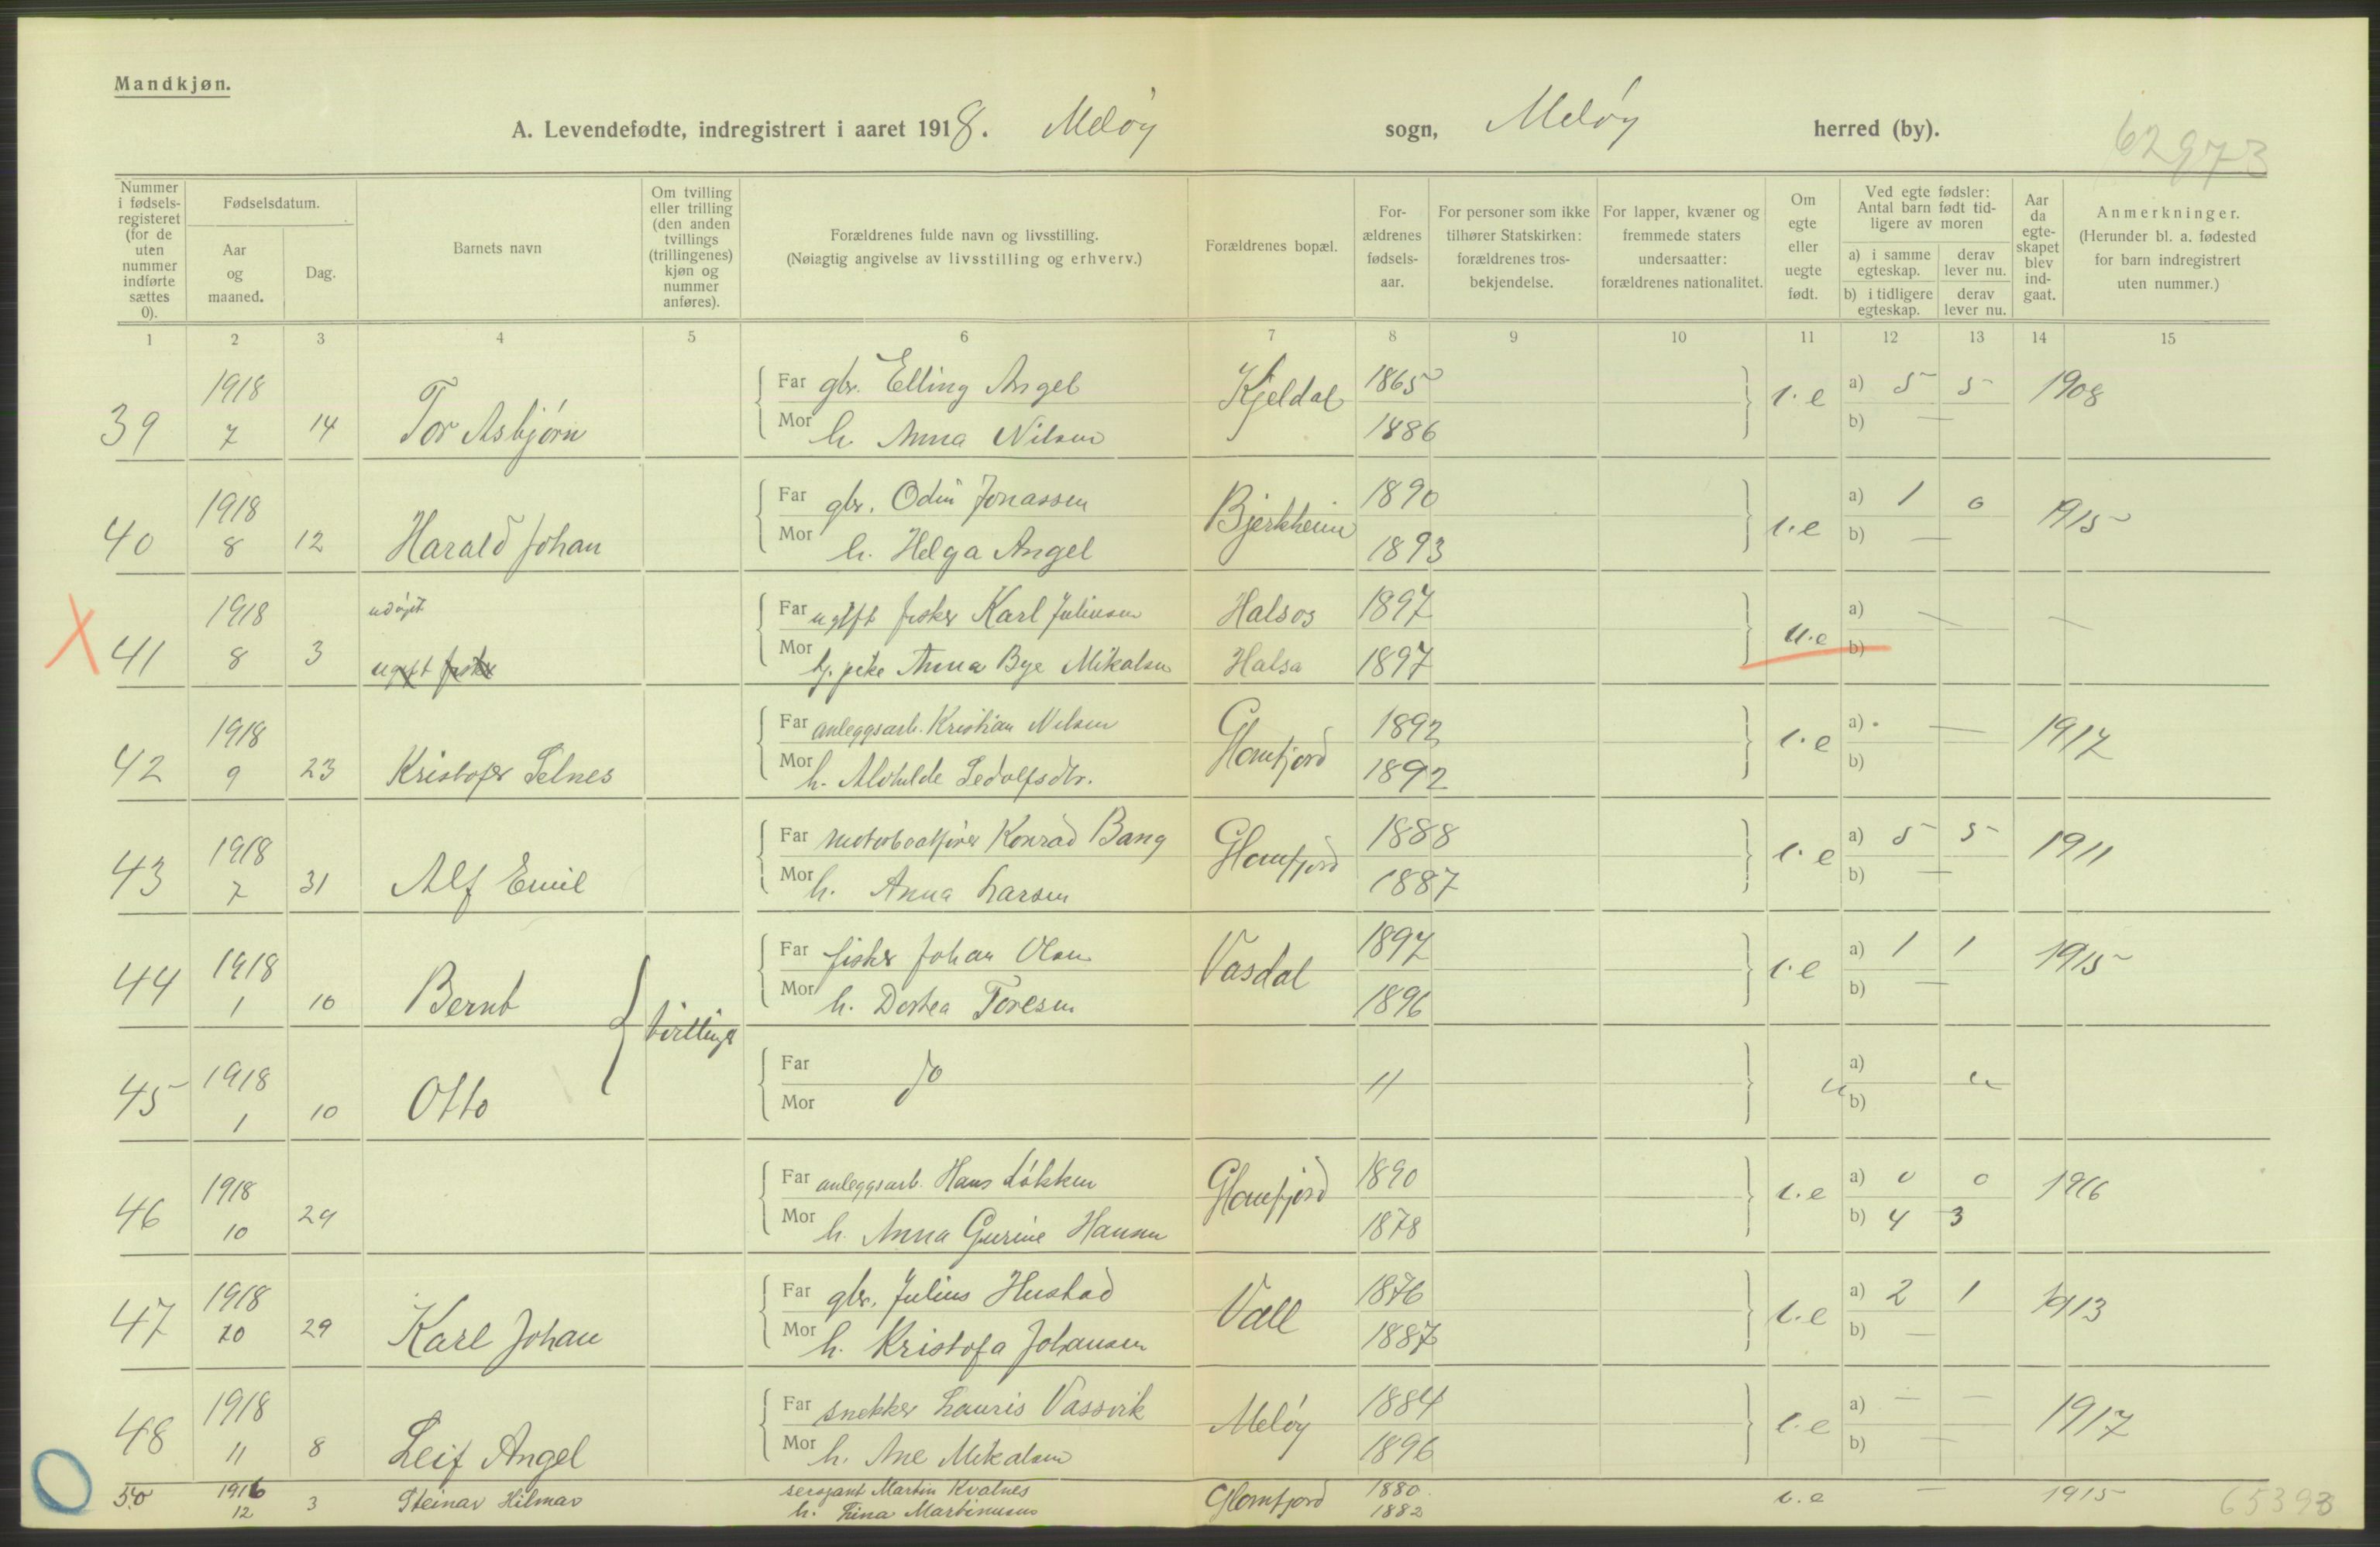 Mandkjøn.
A. Levendefødte, indregistrert i aaret 1918. Meløy sogn, Meløy herred (by).
62973
Nummer i fødsels-registeret (for de uten nummer indførte sættes 0).
Fødselsdatum.
Aar og maaned.
Dag.
Barnets navn
Om tvilling eller trilling (den anden tvillings (trillingenes) kjøn og nummer anføres).
Forældrenes fulde navn og livsstilling.
(Nøiagtig angivelse av livsstilling og erhverv.)
Forældrenes bopæl.
For-ældrenes fødsels-aar.
For personer som ikke tilhører Statskirken: forældrenes tros-bekjendelse.
For lapper, kvæner og fremmede staters undersaatter: forældrenes nationalitet.
Om egte eller uegte født.
Ved egte fødsler: Antal barn født tid-ligere av moren
a) i samme egteskap.
derav lever nu.
b) i tidligere egteskap.
derav lever nu.
Aar da egte-skapet blev ind-gaat.
Anmerkninger.
(Herunder bl. a. fødested for barn indregistrert uten nummer.)
1 2 3 4 5 6 7 8 9 10 11 12 13 14 15
1918 Far gbr. Elling Angel Kjeldal 1865 e.e a) 5 5 1908
39 7 14 Tor Asbjørn Mor h. Anna Nilsen 1886 b) —
1918 Far gbr. Odin Jonassen Bjerkheim 1890 e.e a) 1 0 1915
40 8 12 Harald Johan Mor h. Helga Angel 1893 b) —
1918 udøpt Far ugift fisker Karl Juliussen Halsos 1897 u.e a) — —
41 8 3 ugift fisker Mor tj. pike Anna Bye Mikalsen Halsa 1897 b)
1918 Far anleggsarb. Kristian Nilsen Glomfjord 1892 e.e a) — 1917
42 9 23 Kristofer Selnes Mor h. Alvhilde Sedolfsdtr. 1892 b)
1918 Far motorbaatfører Konrad Bang Glomfjord 1888 e.e a) 5 5 1911
43 7 31 Alf Emil Mor h. Anna Larsen 1887 b) —
1918 Far fisker Johan Olsen Vasdal 1897 e.e a) 1 1 1915
44 1 10 Bernt Mor h. Dortea Toresen 1896 b) —
tvillinger
1918 Far do 11 " a) "
45 1 10 Otto Mor b)
1918 Far anleggsarb. Hans Løkken Glomfjord 1890 e.e a) 0 0 1916
46 10 29 Mor h. Anna Gurine Hansen 1878 b) 4 3
1918 Far gbr. Julius Hustad Vall 1876 e.e a) 2 1 1913
47 10 29 Karl Johan Mor h. Kristofa Johansen 1887 b) —
1918 Far snekker Lauris Vassvik Meløy 1884 e.e a) — — 1917
48 11 8 Leif Angel Mor h. Ane Mikalsen 1896 b) —
50 1916 12 3 Steinar Hilmar sersjant Martin Kvalnes Glomfjord 1880 e.e — 1915
h. Lina Martinusen 1882
65393